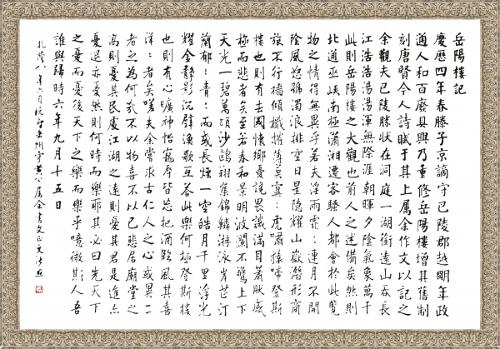 岳陽樓記
慶歷四年春滕子京謫守巴陵郡越明年政
通人和百廢具興乃重修岳陽樓增其舊制
刻唐賢今人詩賦于其上屬余作文以記之
余觀夫巴陵勝狀在洞庭一湖銜遠山吞長
江浩浩湯湯渾無際涯朝暉夕陰氣象萬千
此則岳陽樓之大觀也前人之述備矣然則
北通巫峽南極瀟湘遷客騷人都會於此覽
物之情得無異乎若夫淫雨霏〻連月不開
陰風怒號濁浪排空日星隱耀山嶽潛形商
旅不行檣傾楫摧薄暮冥〻虎嘯猿啼登斯
樓也則有去國懷鄉憂讒畏譏滿目蕭然感
極而悲者矣至若春和景明波瀾不驚上下
天光一碧萬頃沙鷗翔集錦鱗游泳岸芷汀
蘭郁〻青〻而或長煙一空皓月千里浮光
耀金靜影沉璧漁歌互答此樂何極登斯樓
也則有心曠神怡寵辱皆忘把酒臨風其喜
洋〻者矣嗟夫余嘗求古仁人之心或異二
者之為何哉不以物喜不以己悲居廟堂之
高則憂其民處江湖之遠則憂其君是進亦
憂退亦憂然則何時而樂耶其必曰先天下
之憂而憂後天下之樂而樂乎噫微斯人吾
誰與歸時六年九月十五日